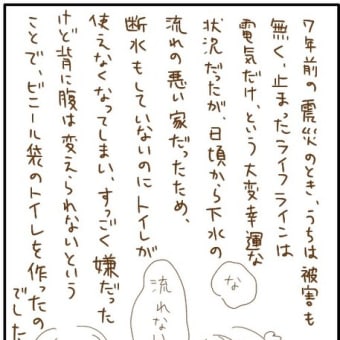 7年前の震災のとき、うちは被害も
無く、止まったライフラインは
電気だけ、という大変幸運な
状況だったが、日頃から下水の
流れの悪い家だったため、
断水もしていないのにトイレが
使えなくなってしまい、すっごく嫌だった
けど背に腹は変えられないという
ことで、ビニール袋のトイレを作ったの
でした
な
流れない